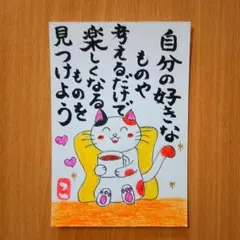 自分の好きな
ものや
考えるだけで
楽しくなる
ものを
見つけよう